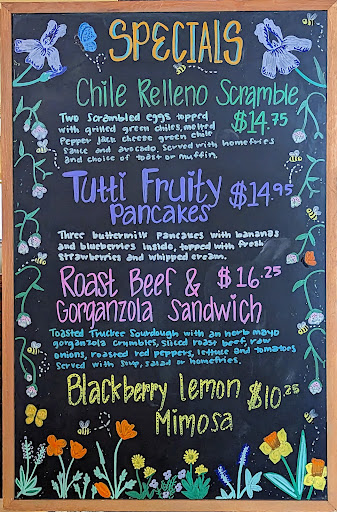 SPECIALS
Chile Relleno Scramble
Two scrambled eggs topped
with grilled green chiles, melted
Pepper jack cheese green chile
sauce and avocado. Served with homefries
and choice of toast or muffin.
$14.75
Tutti Fruity $14.95
Pancakes
Three buttermilk pancakes with bananas
and blueberries inside, topped with fresh
strawberries and whipped cream.
Roast Beef & $16.25
Gorganzola Sandwich
Toasted Truckee Sourdough with an herb mayo
gorganzola crumbles, sliced roast beef, raw
onions, roasted red peppers, lettuce and tomatoes
Served with soup, salad or homefries.
Blackberry Lemon $10.25
Mimosa